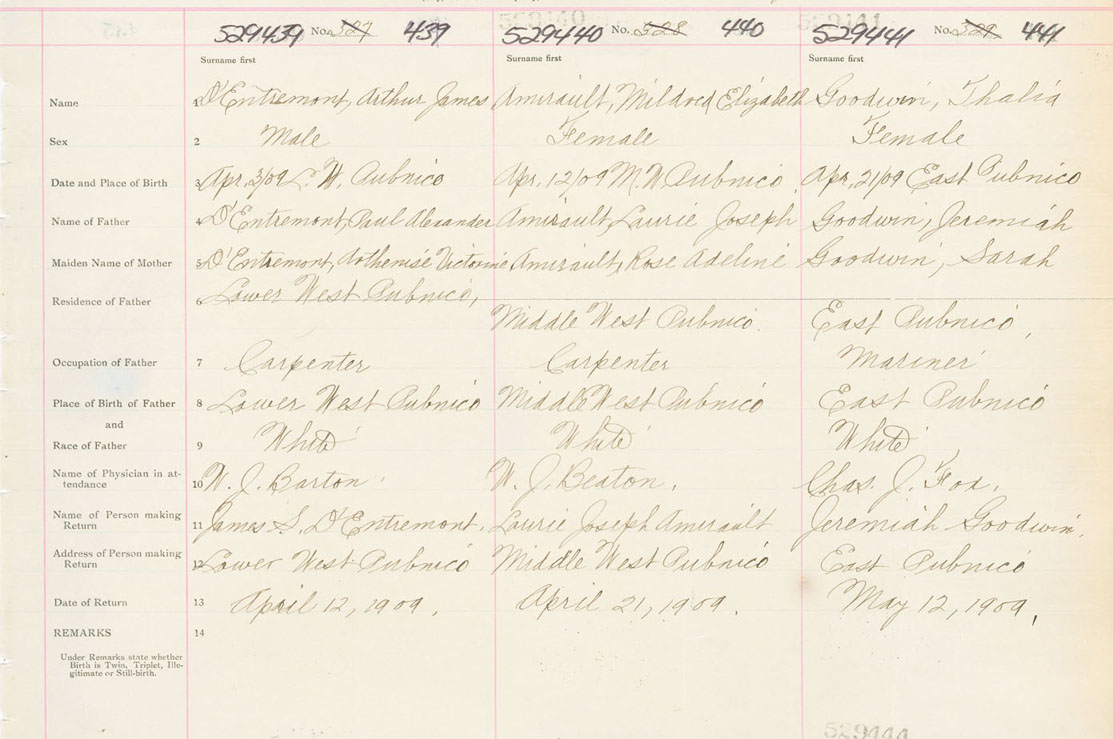 529439 No. 327 439 529440 No. 328 440 529441 No. 329 441
Surname first Surname first Surname first
Name 1 D'Entremont, Arthur James Amirault, Mildred Elizabeth Goodwin, Thalia
Sex 2 Male Female Female
Date and Place of Birth 3 Apr. 3/09 L. W. Pubnico Apr. 12/09 M. W. Pubnico Apr. 21/09 East Pubnico
Name of Father 4 D'Entremont, Paul Alexander Amirault, Laurie Joseph Goodwin, Jeremiah
Maiden Name of Mother 5 D'Entremont, Arthemise Victorine Amirault, Rose Adeline Goodwin, Sarah
Residence of Father 6 Lower West Pubnico, Middle West Pubnico. East Pubnico,
Occupation of Father 7 Carpenter Carpenter Mariner
Place of Birth of Father 8 Lower West Pubnico Middle West Pubnico East Pubnico
and
Race of Father 9 White White White
Name of Physician in at-
tendance 10 W. J. Barton. W. J. Beaton. Chas. J. Fox.
Name of Person making
Return 11 James S. D'Entremont. Laurie Joseph Amirault Jeremiah Goodwin.
Address of Person making
Return 12 Lower West Pubnico Middle West Pubnico East Pubnico
Date of Return 13 April 12, 1909. April 21, 1909. May 12, 1909.
REMARKS 14
Under Remarks state whether
Birth is Twin, Triplet, Ille-
gitimate or Still-birth.
529444